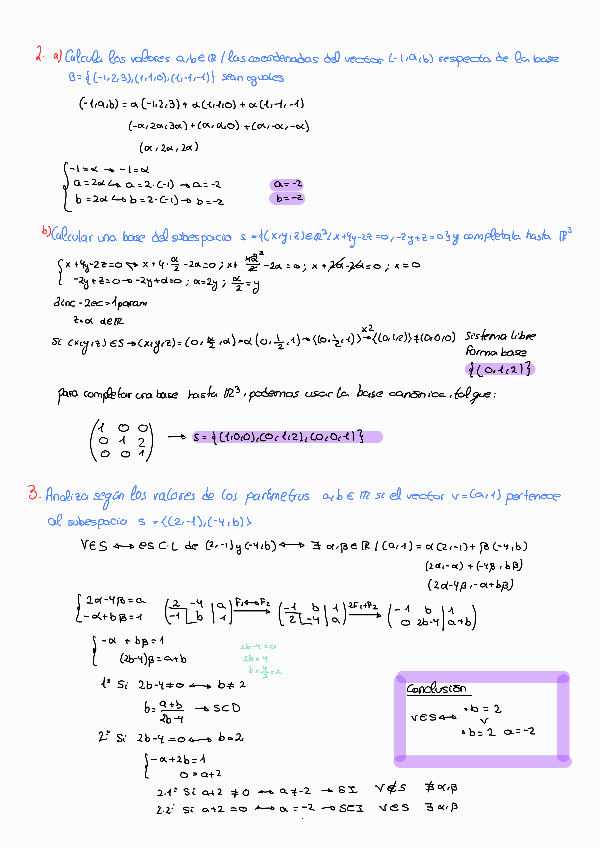 2. a) Calcula los valores a,b∈ℝ / las coordenadas del vector (-1,a,b) respecto de la base
B={(-1,2,3),(1,1,0),(1,-1,-1)} sean iguales
(-1,a,b) = α(-1,2,3)+α(1,1,0)+α(1,-1,-1)
(-α,2α,3α)+(α,α,0)+(α,-α,-α)
(α,2α,2α)
-1=α → -1=α
a=2α ↔ a=2·(-1) → a=-2
a=-2
b=2α ↔ b=2·(-1) → b=-2
b=-2
b) Calcular una base del subespacio S={(x,y,z)∈ℝ³/x+4y-2z=0,-2y+z=0} y complétala hasta ℝ³
x+4y-2z=0 → x+4·α/2-2α=0; x+4α/2-2α=0; x+2α-2α=0; x=0
-2y+z=0 → -2y+α=0; α=2y; α/2=y
3inc-2ec=1param
z=α α∈ℝ
Si (x,y,z)∈S → (x,y,z)=(0,α/2,α)=α(0,1/2,1) → ⟨(0,1/2,1)⟩ x2→ ⟨(0,1,2)⟩≠(0,0,0) Sistema libre
Forma base
{(0,1,2)}
para completar una base hasta ℝ³, podemos usar la base canónica, tal que:
1 0 0
0 1 2 → S={(1,0,0),(0,1,2),(0,0,1)}
0 0 1
3. Analiza según los valores de los parámetros a,b∈ℝ si el vector v=(a,1) pertenece
al subespacio S=⟨(2,-1),(-4,b)⟩
V∈S ↔ es C.L de (2,-1) y (-4,b) ↔ ∃ α,β∈ℝ / (a,1)=α(2,-1)+β(-4,b)
(2α,-α)+(-4β,bβ)
(2α-4β,-α+bβ)
2α-4β=a (2 -4 | a) F₁↔F₂ (-1 b | 1) 2F₁+F₂ (-1 b | 1)
-α+bβ=1 (-1 b | 1) → (2 -4 | a) → (0 2b-4 | a+b)
-α+bβ=1
(2b-4)β=a+b
2b-4=0
2b=4
b=4/2=2
1º Si 2b-4≠0 ↔ b≠2
b=a+b/2b-4 → SCD
2º Si 2b-4=0 ↔ b=2
-α+2b=1
0=a+2
2.1º Si a+2≠0 ↔ a≠-2 → SI V∉S ∄α,β
2.2º Si a+2=0 ↔ a=-2 → SCI V∈S ∃α,β
Conclusión
·b=2
V∈S ↔ v
·b=2 a=-2